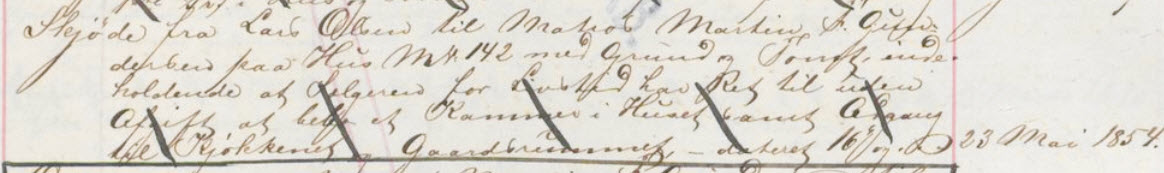 Skjøde fra Lars Olsen til Matros Martin F. Gun-
dersen paa Hus M.N. 142 med Grund og Tomt, inde-
holdende at Selgeren for Livstid har Ret til uden
Afgift at bebo et Kammer i Huset samt Adgang
til Kjøkkenet og Gaardsrummet, – dateret 16/ og 23 Mai 1854.